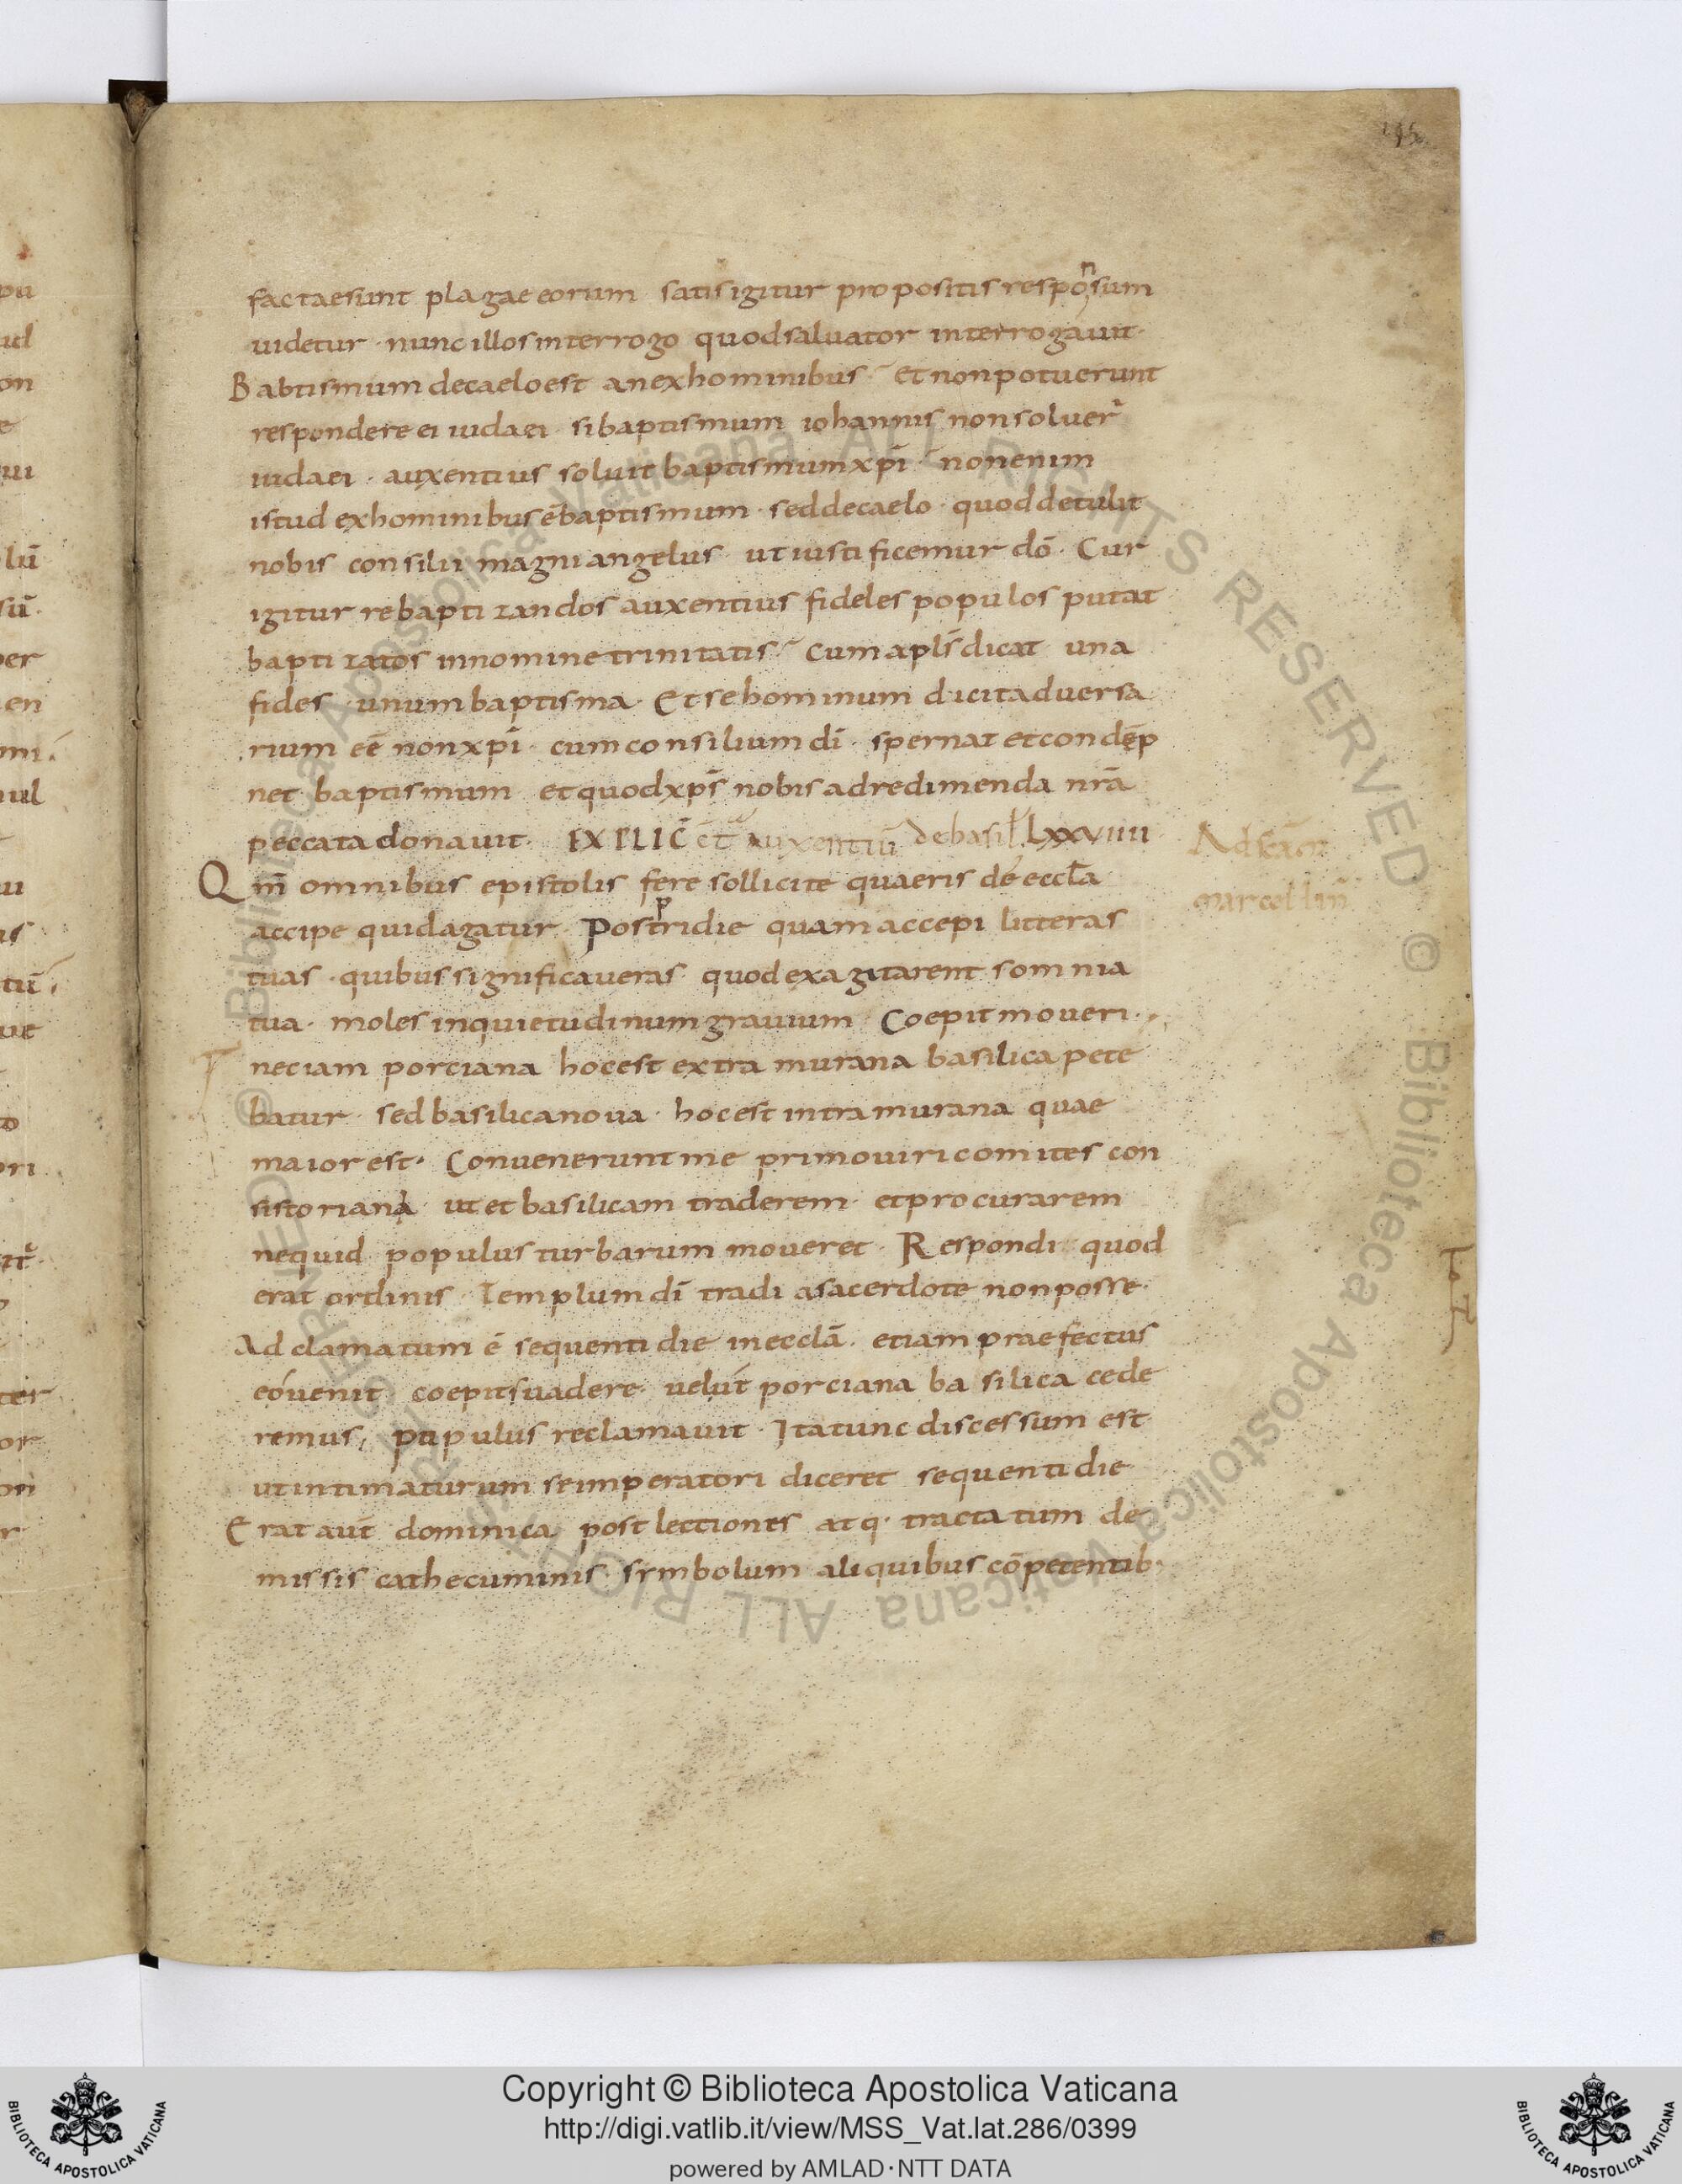 195
factae sunt plagae eorum satis igitur propositis responsum
uidetur · nunc illos interrogo quod saluator interrogauit ·
Babtismum de caelo est an ex hominibus et non potuerunt
respondere ei iudaei si baptismum iohannis non soluer̄
iudaei · auxentius soluit baptismum xp̄i non enim
istud ex hominibus ē baptismum · sed de caelo · quod detulit
nobis consilii magni angelus ut iustificemur dō · Cur
igitur rebaptizandos auxentius fideles populos putat
baptizatos in nomine trinitatis Cum apl̄s dicat una
fides · unum baptisma · Et se hominum dicit aduersa
rium eē non xp̄i · cum consilium dī · spernat et condēp
net baptismum et quod xp̄s nobis ad redimenda nr̄a
peccata donauit · EXPLIC̄ auxentiū de basil LXXVIIII
Qm̄ omnibus epistolis fere sollicite quaeris de eccl̄a
accipe quid agatur Postpridie quam accepi litteras
tuas · quibus significaueras quod exagitarent somnia
tua · moles inquietudinum grauium Coepit moueri ·
nec iam porciana hoc est extra murana basilica pete
batur sed basilica noua · hoc est intra murana quae
maior est · Conuenerunt me primo uiri comites con
sistoriani ut et basilicam traderem et procurarem
nequid populus turbarum moueret · Respondi quod
erat ordinis Templum dī tradi a sacerdote non posse ·
Adclamatum ē sequenti die in eccl̄a · etiam praefectus
eó uenit coepit suadere · uel ut porciana basilica cede
remus, populus reclamauit · Ita tunc discessum est
ut intimaturum se imperatori diceret sequenti die
Erat aut̄ dominica post lectiones atq· tractatum de
missis cathecuminis symbolum aliquibus cōpetentib·
Ad sc̄am
marcellin̄
pu
ul
on
e
ui
lū
sū
er
en
mi
ul
u
is
tū
ue
to
ori
ter
or
r
© Biblioteca Apostolica Vaticana ALL RIGHTS RESERVED © Biblioteca Apostolica Vaticana ALL RIGHTS RESERVED
Copyright © Biblioteca Apostolica Vaticana
http://digi.vatlib.it/view/MSS_Vat.lat.286/0399
powered by AMLAD·NTT DATA
BIBLIOTECA APOSTOLICA VATICANA
BIBLIOTECA APOSTOLICA VATICANA